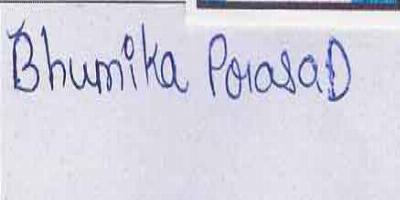 Bhumika PorasaD